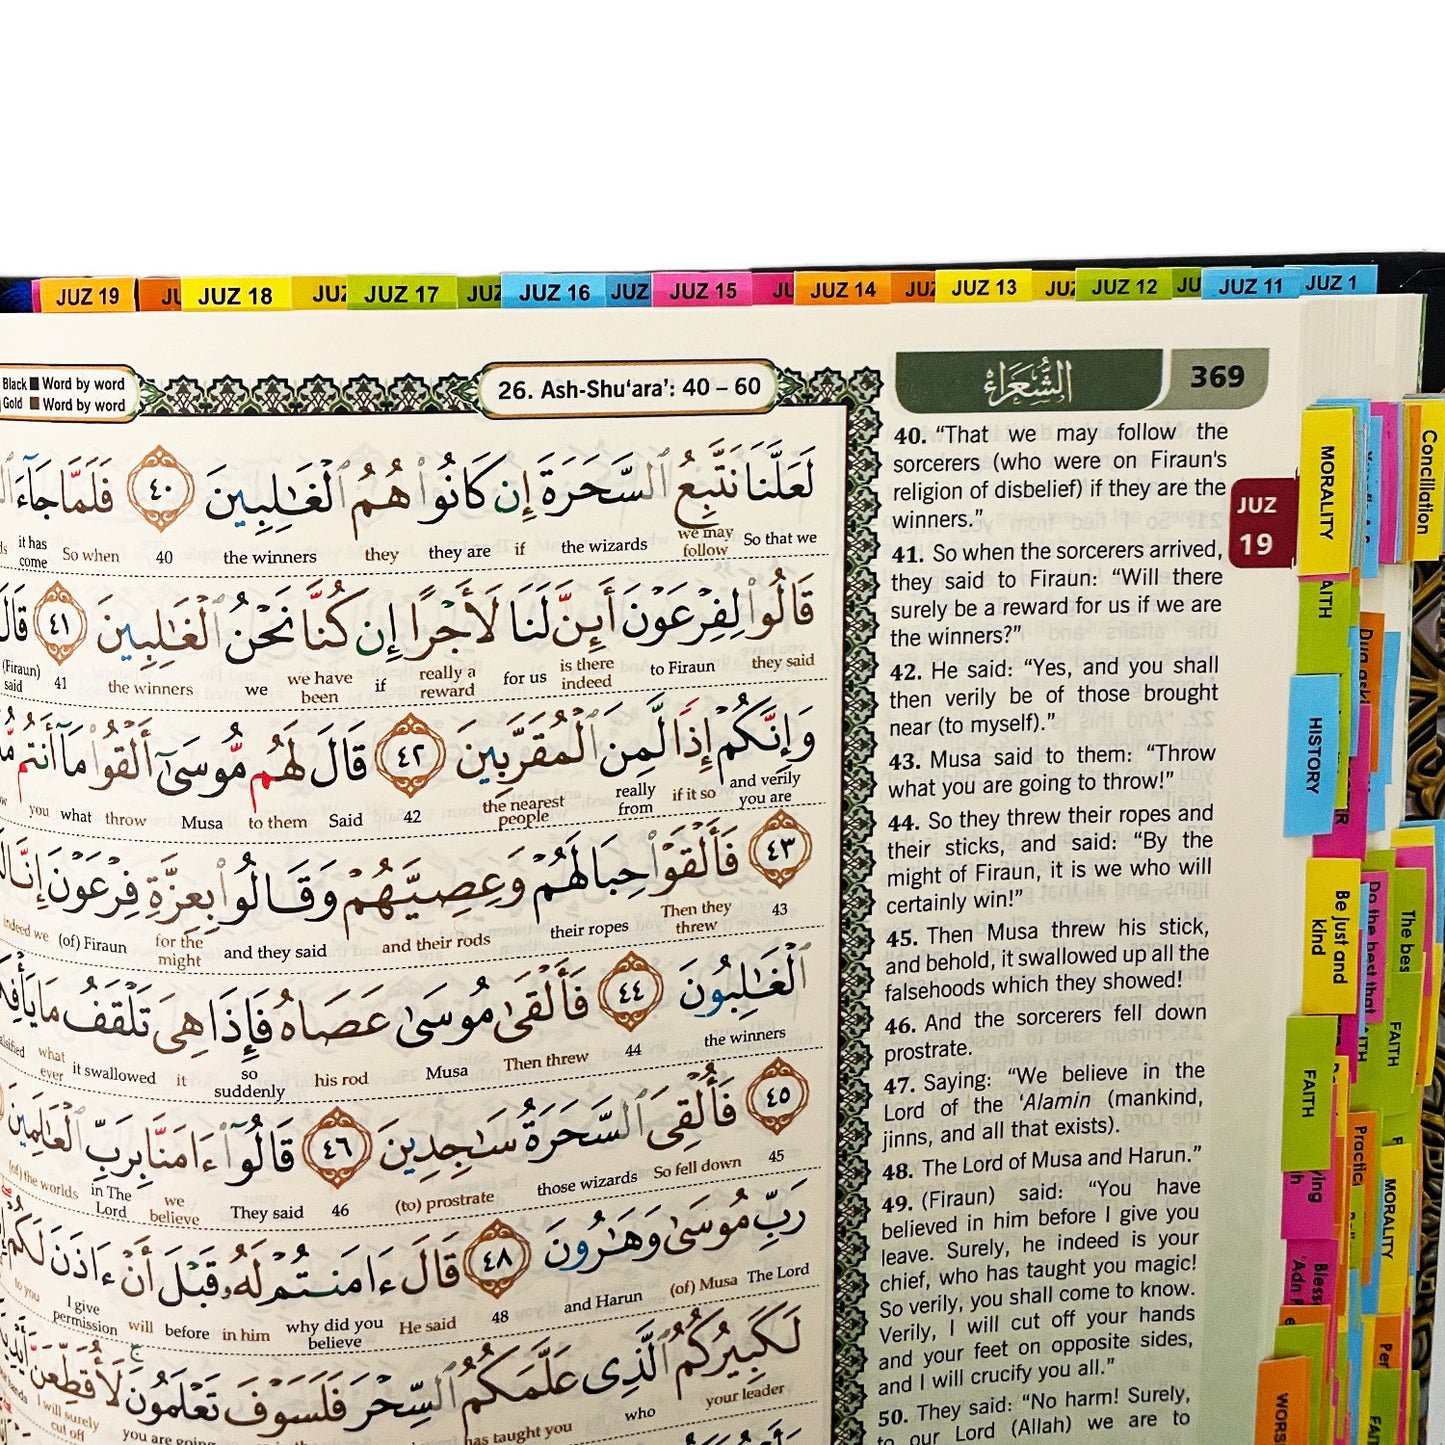 JUZ 19
JUZ 18
JUZ 17
JUZ 16
JUZ
JUZ 15
JUZ 14
JUZ 13
JUZ 12
JUZ 11
JUZ 1
Black Word by word
Gold Word by word
26. Ash-Shu‘ara’: 40 – 60
الشُّعَرَاءُ
369
لَعَلَّنَا نَتَّبِعُ ٱلسَّحَرَةَ إِن كَانُوا۟ هُمُ ٱلْغَـٰلِبِينَ ٤٠ فَلَمَّا جَآءَ
So that we we may follow the wizards if they are they the winners 40 So when it has come
قَالُوا۟ لِفِرْعَوْنَ أَئِنَّ لَنَا لَأَجْرًا إِن كُنَّا نَحْنُ ٱلْغَـٰلِبِينَ ٤١
they said to Firaun is there indeed for us really a reward if we have been we the winners 41 (Firaun) said
وَإِنَّكُمْ إِذًا لَّمِنَ ٱلْمُقَرَّبِينَ ٤٢ قَالَ لَهُم مُّوسَىٰٓ أَلْقُوا۟ مَآ أَنتُم
and verily you are if it so really from the nearest people 42 Said to them Musa throw what you
٤٣ فَأَلْقَوْا۟ حِبَالَهُمْ وَعِصِيَّهُمْ وَقَالُوا۟ بِعِزَّةِ فِرْعَوْنَ إِنَّا
43 Then they threw their ropes and their rods and they said for the might (of) Firaun indeed we
ٱلْغَـٰلِبُونَ ٤٤ فَأَلْقَىٰ مُوسَىٰ عَصَاهُ فَإِذَا هِىَ تَلْقَفُ مَا
the winners 44 Then threw Musa his rod so suddenly it it swallowed what ever
٤٥ فَأُلْقِىَ ٱلسَّحَرَةُ سَـٰجِدِينَ ٤٦ قَالُوٓا۟ ءَامَنَّا بِرَبِّ ٱلْعَـٰلَمِينَ
45 So fell down those wizards (to) prostrate 46 They said we believe in The Lord (of) the worlds
رَبِّ مُوسَىٰ وَهَـٰرُونَ ٤٨ قَالَ ءَامَنتُمْ لَهُۥ قَبْلَ أَنْ ءَاذَنَ لَكُمْ
The Lord (of) Musa and Harun 48 He said why did you believe in him before will I give permission to you
لَكَبِيرُكُمُ ٱلَّذِى عَلَّمَكُمُ ٱلسِّحْرَ فَلَسَوْفَ تَعْلَمُونَ لَأُقَطِّعَنَّ
your leader who has taught you you are going I will surely cut off
40. “That we may follow the
sorcerers (who were on Firaun's
religion of disbelief) if they are the
winners.”
41. So when the sorcerers arrived,
they said to Firaun: “Will there
surely be a reward for us if we are
the winners?”
42. He said: “Yes, and you shall
then verily be of those brought
near (to myself).”
43. Musa said to them: “Throw
what you are going to throw!”
44. So they threw their ropes and
their sticks, and said: “By the
might of Firaun, it is we who will
certainly win!”
45. Then Musa threw his stick,
and behold, it swallowed up all the
falsehoods which they showed!
46. And the sorcerers fell down
prostrate.
47. Saying: “We believe in the
Lord of the ‘Alamin (mankind,
jinns, and all that exists).
48. The Lord of Musa and Harun.”
49. (Firaun) said: “You have
believed in him before I give you
leave. Surely, he indeed is your
chief, who has taught you magic!
So verily, you shall come to know.
Verily, I will cut off your hands
and your feet on opposite sides,
and I will crucify you all.”
50. They said: “No harm! Surely,
to our Lord (Allah) we are to
JUZ
19
MORALITY
Conciliation
HISTORY
Be just and
kind
Do the best that
The bes
FAITH
FAITH
MORALITY
FAITH